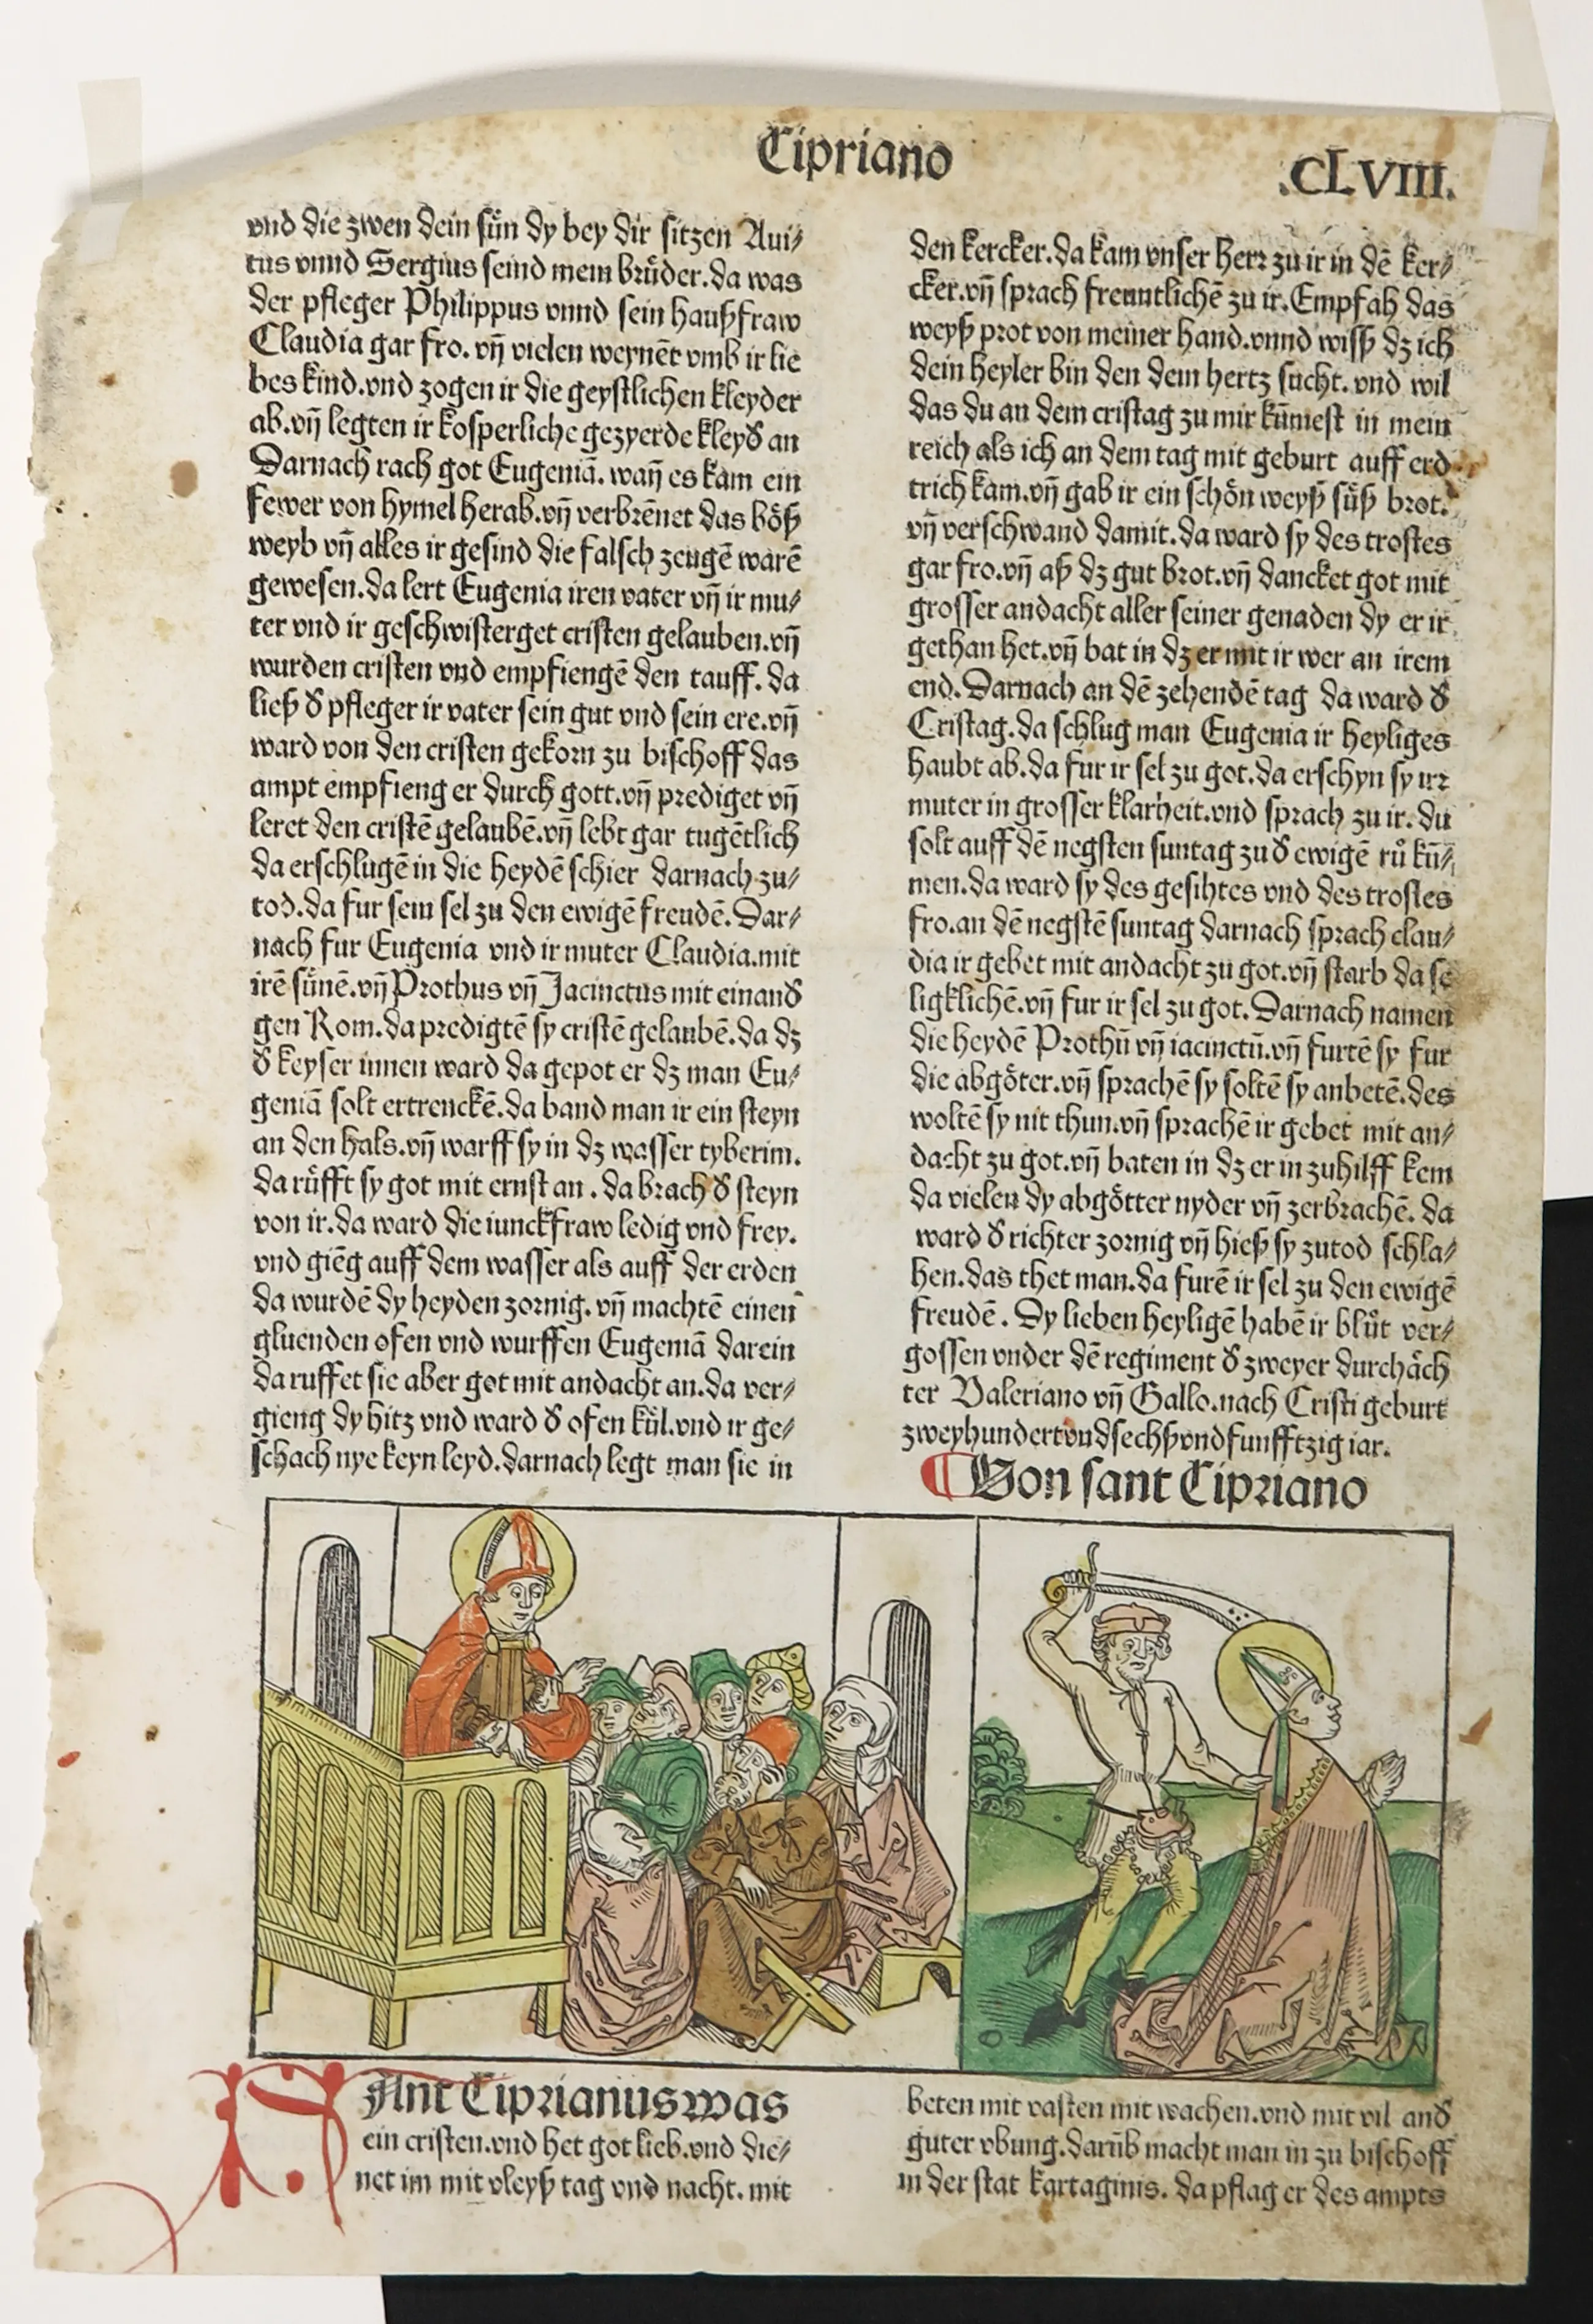 Cipriano
.CLVIII.
vnd die zwen dein sün dy bey dir sitzen Aui⸗
tus vnnd Sergius seind mein brüder.da was
der pfleger Philippus vnnd sein haußfraw
Claudia gar fro. vñ vielen weynēt vmb ir lie
bes kind.vnd zogen ir die geystlichen kleyder
ab.vñ legten ir kosperliche gezyerde kleyd an
Darnach rach got Eugeniā. wañ es kam ein
fewer von hymel herab.vñ verbrēnet das böß
weyb vñ alles ir gesind die falsch zeugē warē
gewesen.da lert Eugenia iren vater vñ ir mu⸗
ter vnd ir geschwisterget cristen gelauben.vñ
wurden cristen vnd empfiengē den tauff. da
ließ d̕ pfleger ir vater sein gut vnd sein ere.vñ
ward von den cristen gekorn zu bischoff das
ampt empfieng er durch gott.vñ prediget vñ
leret den cristē gelaubē.vñ lebt gar tugētlich
da erschlugē in die heydē schier darnach zu⸗
tod.da fur sein sel zu den ewigē freudē. Dar⸗
nach fur Eugenia vnd ir muter Claudia.mit
irē sünē.vñ Prothus vñ Jacinctus mit einand̕
gen Rom.da predigtē sy cristē gelaubē.da dz
d̕ keyser innen ward da gepot er dz man Eu⸗
geniā solt ertrenckē.da band man ir ein steyn
an den hals.vñ warff sy in dz wasser tyberim.
da rüfft sy got mit ernst an . da brach d̕ steyn
von ir.da ward die iunckfraw ledig vnd frey.
vnd giēg auff dem wasser als auff der erden
da wurdē dy heyden zornig. vñ machtē einen
gluenden ofen vnd wurffen Eugeniā darein
da ruffet sie aber got mit andacht an.da ver⸗
gieng dy hitz vnd ward d̕ ofen kül.vnd ir ge⸗
schach nye keyn leyd.darnach legt man sie in
den kercker.da kam vnser herr zu ir in dē ker⸗
cker.vñ sprach freuntlichē zu ir.Empfah das
weyß prot von meiner hand.vnnd wiß dz ich
dein heyler bin den dein hertz sucht. vnd wil
das du an dem cristag zu mir kūmest in mein
reich als ich an dem tag mit geburt auff erd
trich kam.vñ gab ir ein schön weyß süß brot.
vñ verschwand damit.da ward sy des trostes
gar fro.vñ aß dz gut brot.vñ dancket got mit
grosser andacht aller seiner genaden dy er ir
gethan het.vñ bat in dz er mit ir wer an irem
end.Darnach an dē zehendē tag da ward d̕
Cristag.da schlug man Eugenia ir heyliges
haubt ab.da fur ir sel zu got.da erschyn sy irr
muter in grosser klarheit.vnd sprach zu ir. du
solt auff dē negsten suntag zu d̕ ewigē rů kū⸗
men.da ward sy des gesihtes vnd des trostes
fro.an dē negstē suntag darnach sprach clau⸗
dia ir gebet mit andacht zu got.vñ starb da se
ligklichē.vñ fur ir sel zu got. Darnach namen
die heydē Prothū vñ iacinctū.vñ furtē sy fur
die abgöter.vñ sprachē sy soltē sy anbetē.des
woltē sy nit thun.vñ sprachē ir gebet mit an⸗
dacht zu got.vñ baten in dz er in zuhilff kem
da vielen dy abgötter nyder vñ zerbrachē. da
ward d̕ richter zornig vñ hieß sy zutod schla⸗
hen.das thet man.da furē ir sel zu den ewigē
freudē . Dy lieben heyligē habē ir blůt ver⸗
gossen vnder dē regiment d̕ zweyer durchäch
ter Valeriano vñ Gallo.nach Cristi geburt
zweyhundertvndsechßvndfunfftzig iar.
Von sant Cipriano
SAnt Ciprianus was
ein cristen.vnd het got lieb.vnd die⸗
net im mit vleyß tag vnd nacht. mit
beten mit vasten mit wachen.vnd mit vil and̕
guter vbung.darūb macht man in zu bischoff
in der stat kartaginis. da pflag er des ampts